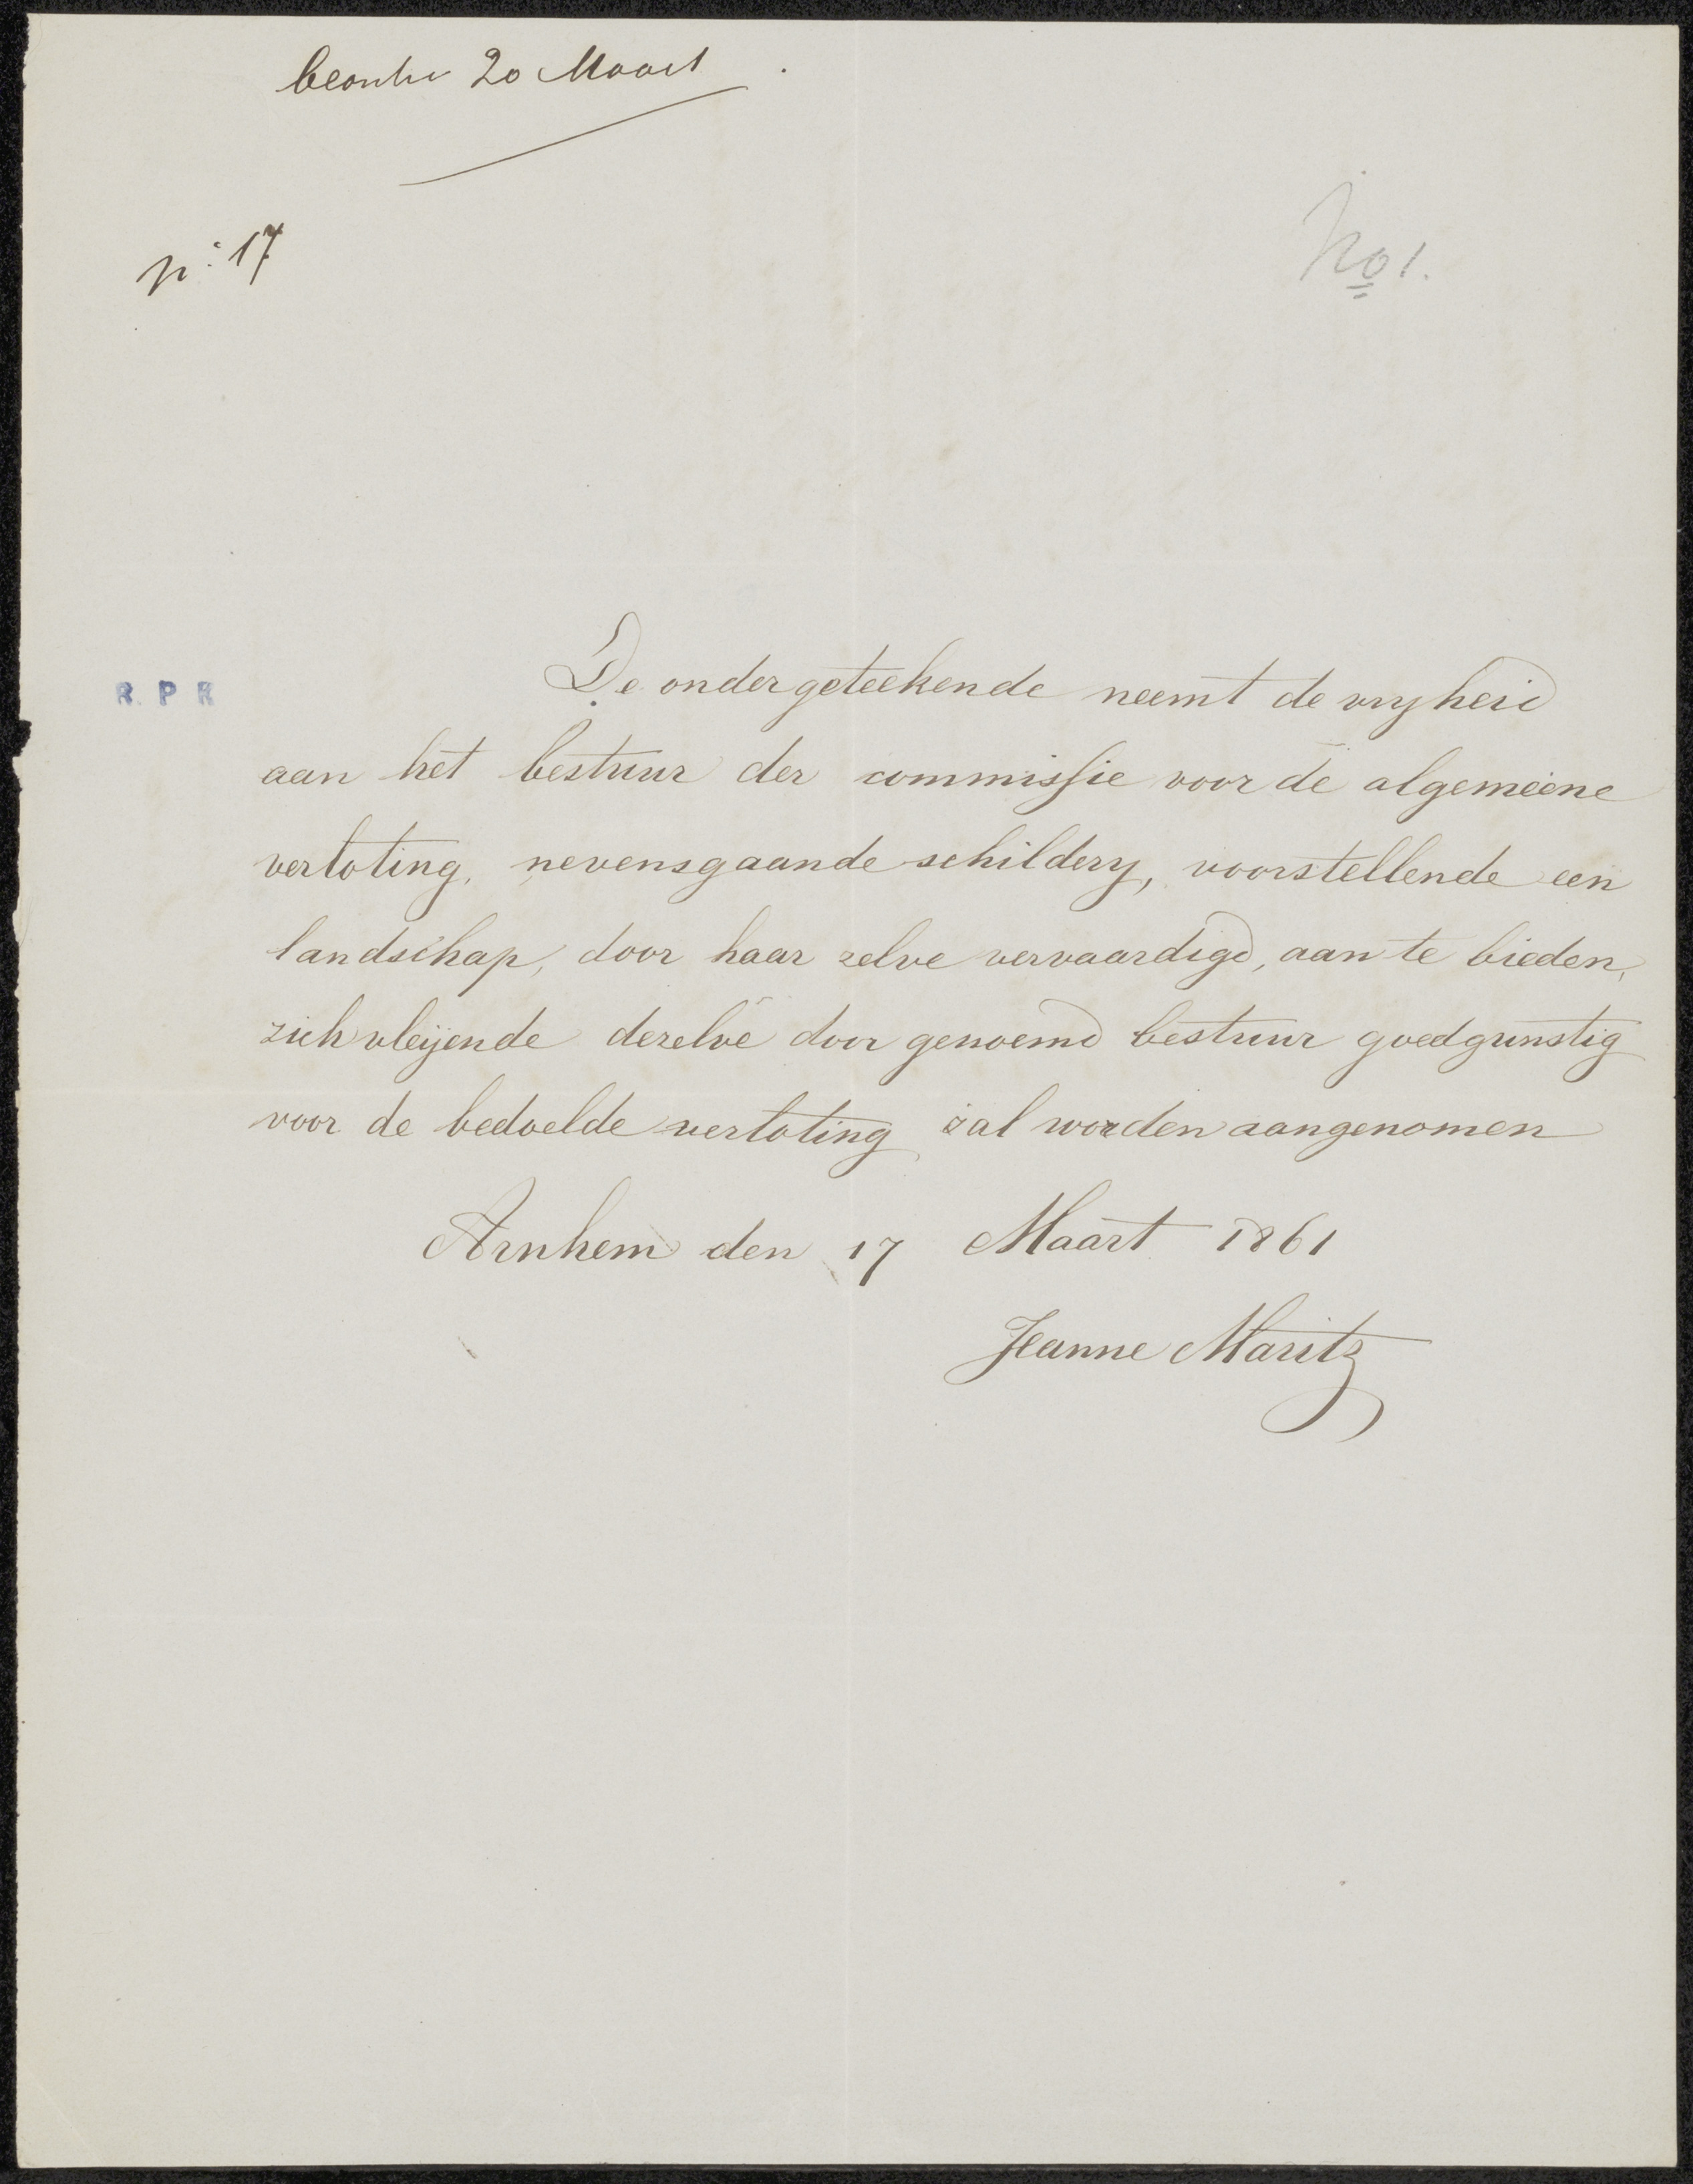 beantw 20 Maart
n: 17
No 1.
R. P. R
De ondergeteekende neemt de vryheid
aan het bestuur der commissie voor de algemeene
verloting, nevensgaande schildery, voorstellende een
landschap, door haar zelve vervaardigd, aan te bieden,
zich vleijende dezelve door genoemd bestuur goedgunstig
voor de bedoelde verloting zal worden aangenomen
Arnhem den 17 Maart 1861
Jeanne Maritz